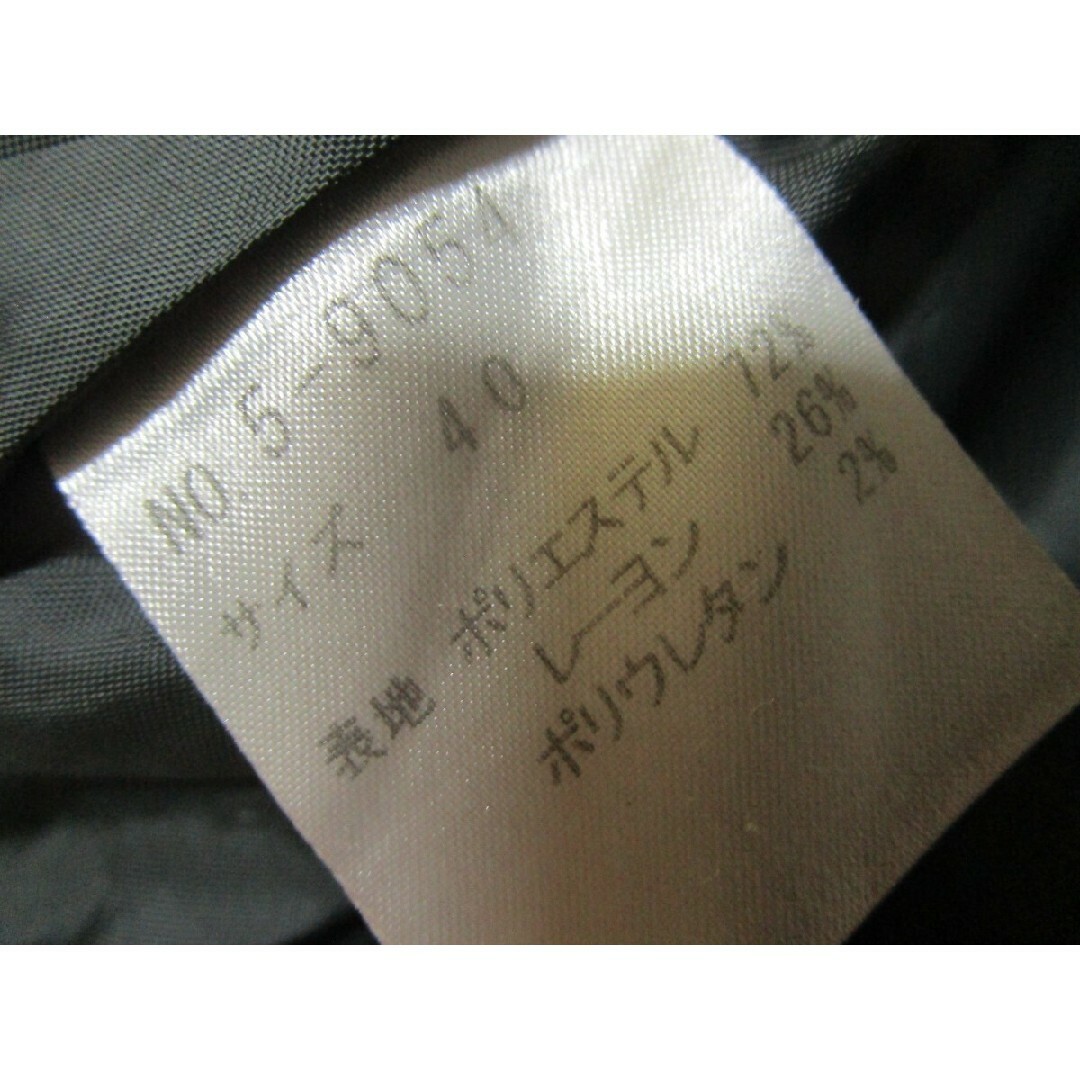 NO. 5-9051
サイズ 40
表地 ポリエステル 72%
レーヨン 26%
ポリウレタン 2%